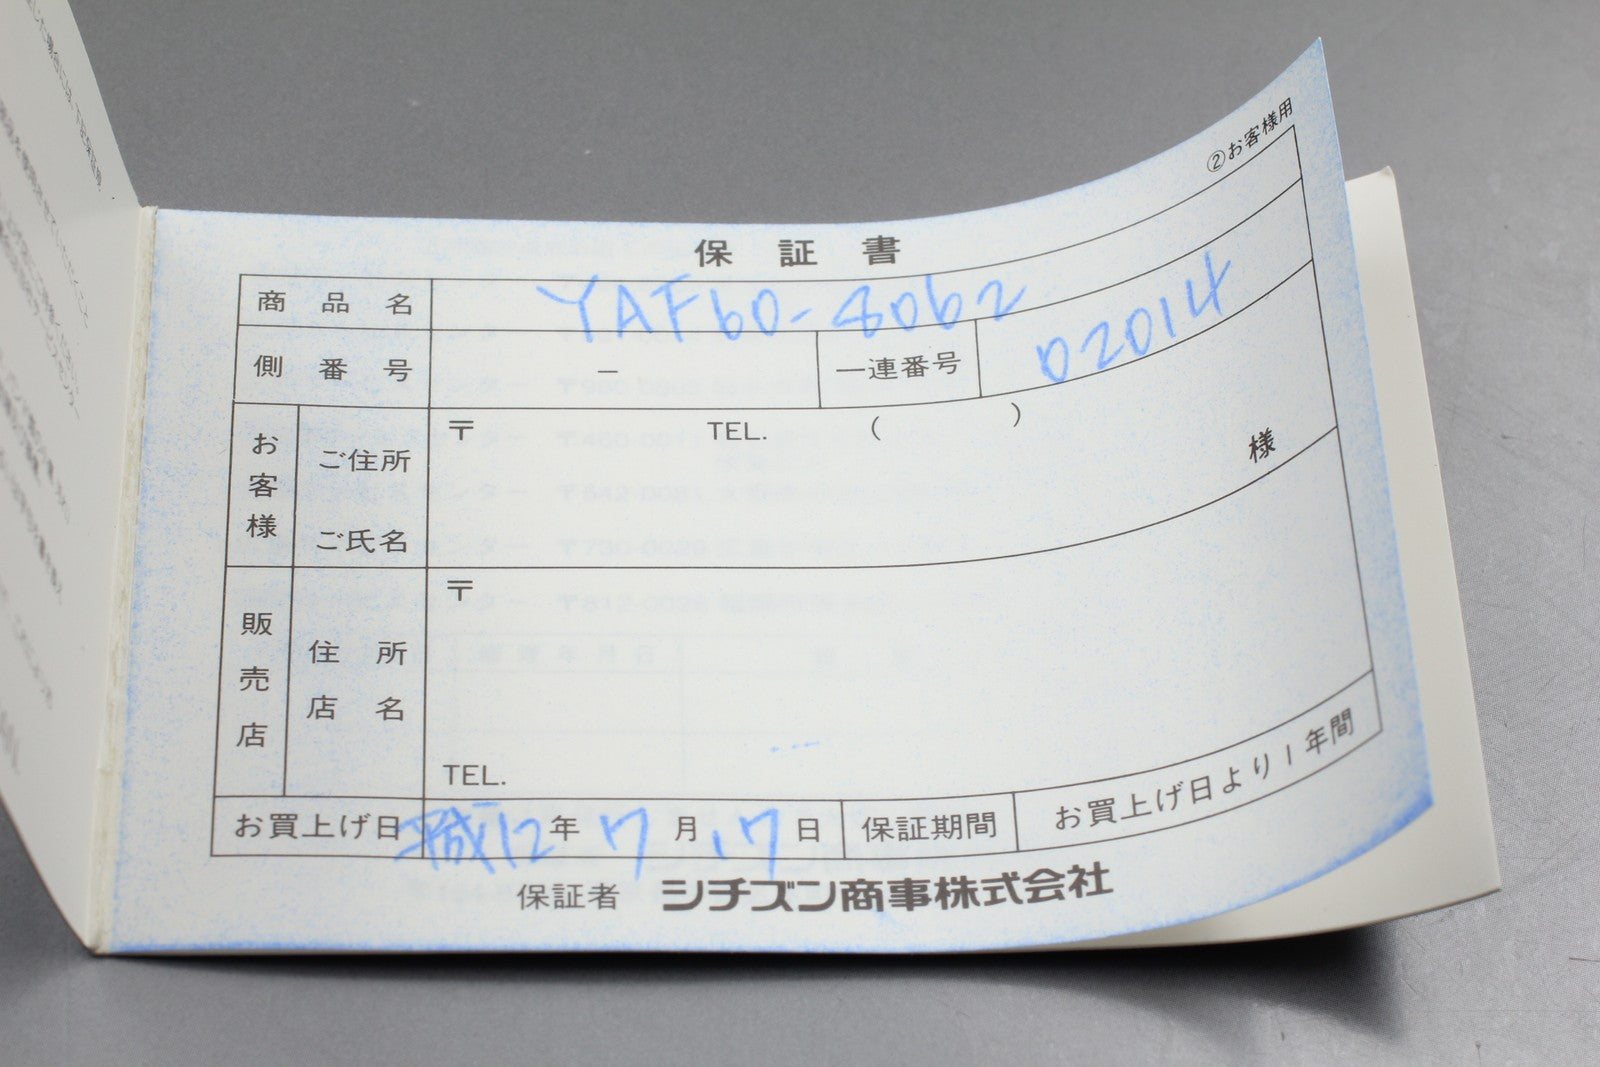 ②お客様用
保証書
商品名 YAF60-8062
側番号 － 一連番号 02014
お客様 ご住所 〒 TEL. ( )
ご氏名 様
販売店 住所 〒
店名
TEL.
お買上げ日 平成12年 7月 17日 保証期間 お買上げ日より1年間
保証者 シチズン商事株式会社